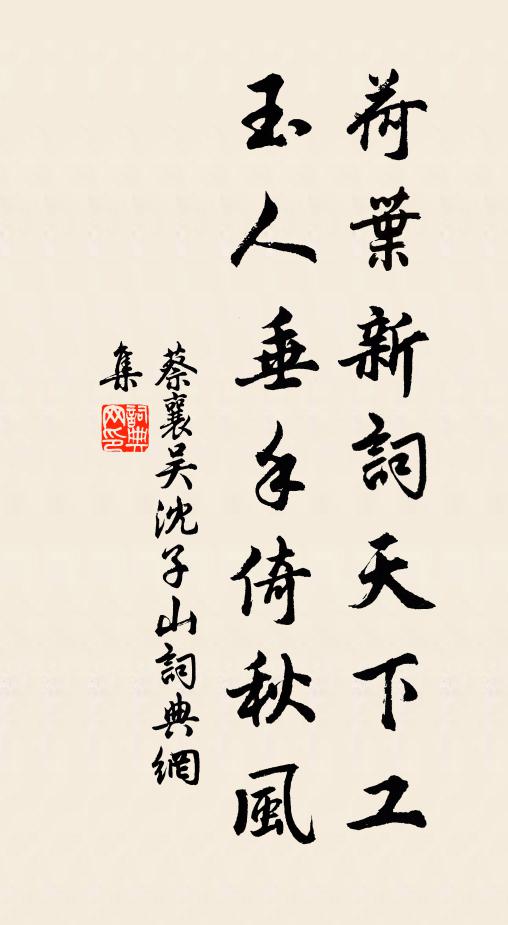 荷葉新詞天下工
玉人垂手倚秋風
蔡襄吴沈子山詞典網
集
詞典網印